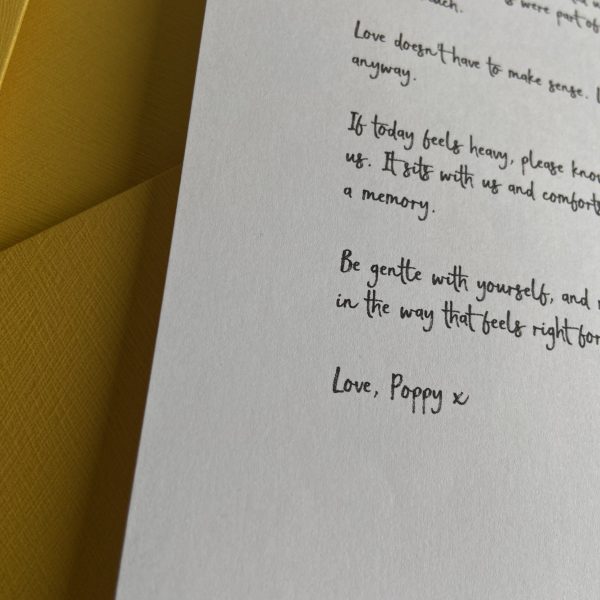 were part of
Love doesn't have to make sense.
anyway.
If today feels heavy, please know
us. It sits with us and comforts
a memory.
Be gentle with yourself, and
in the way that feels right for
Love, Poppy x